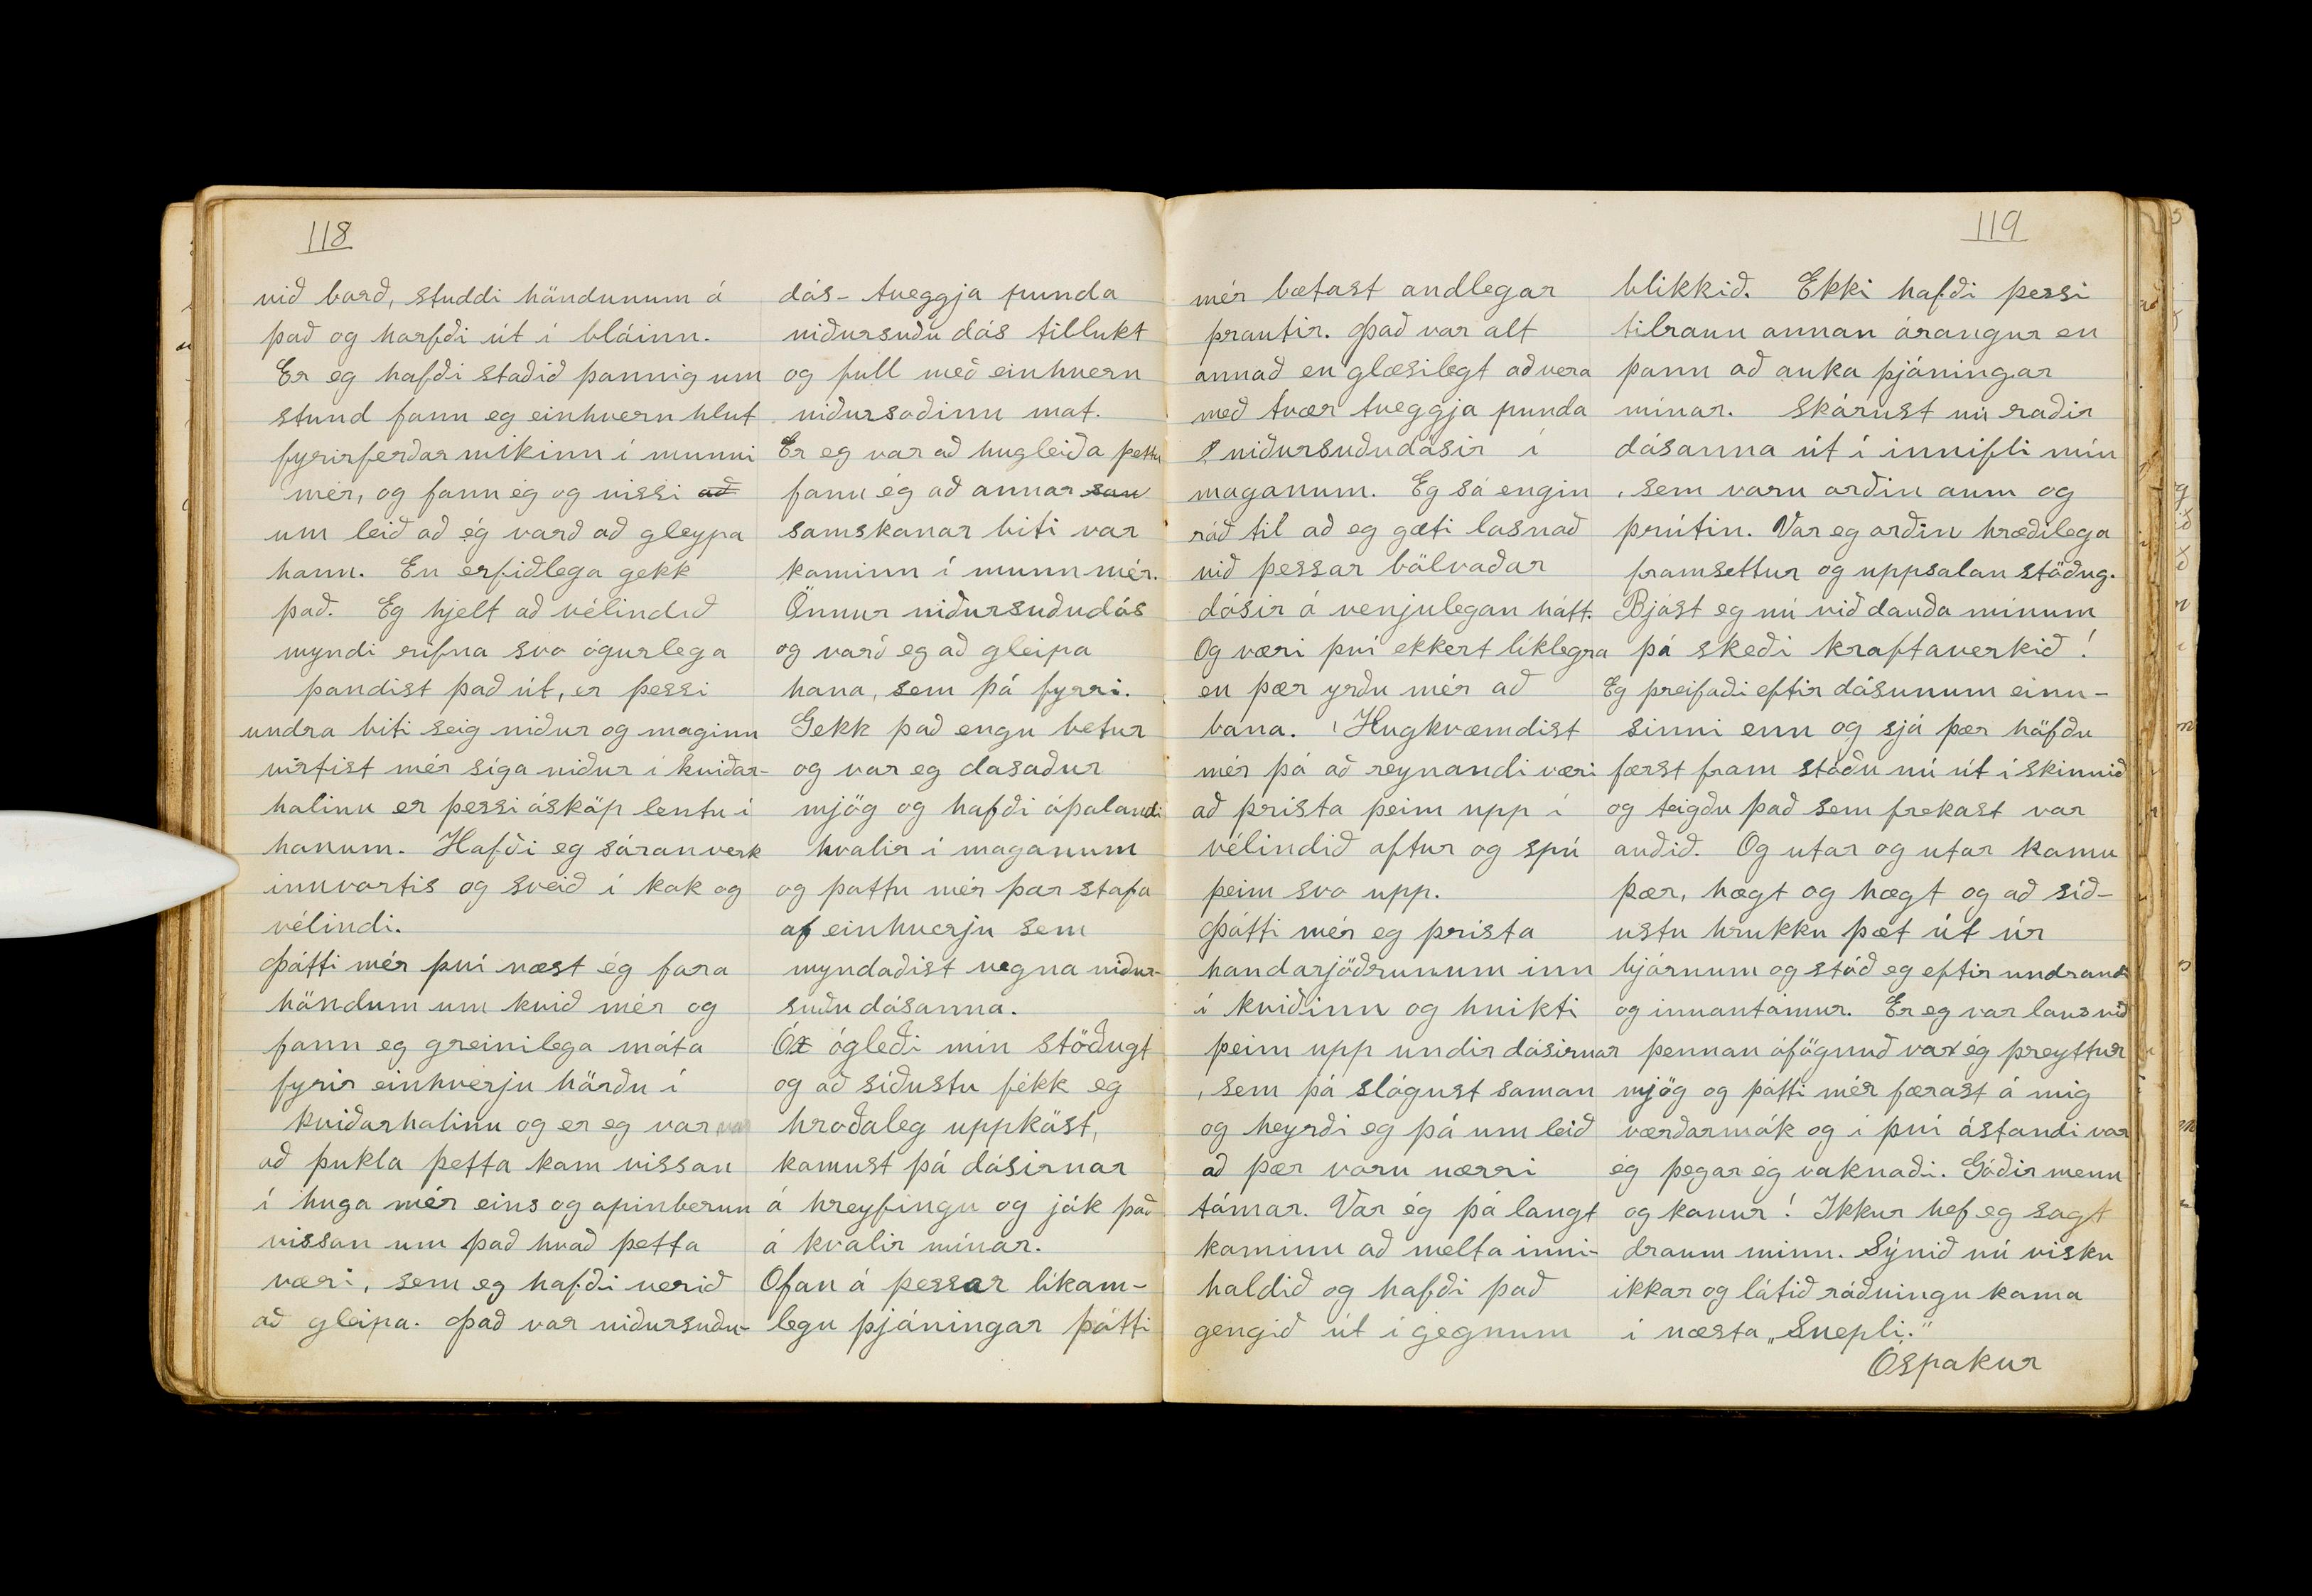 118
við borð, studdi höndunum á
það og horfði út í bláinn.
Er eg hafði staðið þannig um
stund fann eg einhvern hlut
fyrirferðarmikinn í munni
mér, og fann ég og vissi að
um leið að ég varð að gleypa
hann. En erfiðlega gekk
það. Eg hjelt að vélindið
myndi rifna svo ógurlega
þandist það út, er þessi
undra biti seig niður og maginn
virtist mér síga niður í kviðar-
holinu er þessi ósköp lentu í
honum. Hafði eg sáran verk
innvortis og sveið í kok og
vélindi.
Þótti mér því næst ég fara
höndum um kvið mér og
fann eg greinilega móta
fyrir einhverju hörðu í
kviðarholinu og er eg var var
að þukla þetta kom vissan
í huga mér eins og opinberun
vissan um það hvað þetta
væri, sem eg hafði verið
að gleipa. Það var niðursuðu-
dós- tveggja punda
niðursuðu dós tillukt
og full með einhvern
niðursoðinn mat.
Er eg var að hugleiða þettu
fann ég að annar sau
samskonar biti var
kominn í munn mér.
Önnur niðursuðudós
og varð eg að gleipa
hana, sem þá fyrri.
Gekk það engu betur
og var eg dasaður
mjög og hafði óþolandi
kvalir í maganum
og þottu mér þær stafa
af einhverju sem
myndaðist vegna niður-
suðu dósanna.
Óx ógleði mín stöðugt
og að síðustu fékk eg
hroðaleg uppköst,
komust þá dósirnar
á hreyfingu og jók það
á kvalir mínar.
Ofan á þessar líkam-
legu þjáningar þótti
119
mér bætast andlegar
þrautir. Það var alt
annað en glæsilegt að vera
með tvær tveggja punda
niðursuðudósir í
maganum. Eg sá engin
ráð til að eg gæti losnað
við þessar bölvaðar
dósir á venjulegan hátt.
Og væri því ekkert líklegra
en þær yrðu mér að
bana. Hugkvæmdist
mér þá að reynandi væri
að þrista þeim upp í
vélindið aftur og spú
þeim svo upp.
Þótti mér eg þrista
handarjöðrunum inn
í kviðinn og hnikti
þeim upp undir dósirnar
, sem þá slógust saman
og heyrði eg þá um leið
að þær voru nærri
tómar. Var ég þá langt
kominn að melta inni-
haldið og hafði það
gengið út í gegnum
blikkið. Ekki hafði þessi
tilraun annan árangur en
þann að auka þjáningar
mínar. Skárust nú raðir
dósanna út í innifli mín
, sem voru orðin aum og
þrútin. Var eg orðin hræðilega
framsettur og uppsalan stöðug.
Bjóst eg nú við dauða mínum
þá skeði kraftaverkið!
Eg þreifaði eftir dósunum einu-
sinni enn og sjá þær höfðu
færst fram stóðu nú út í skinnið
og teigðu það sem frekast var
auðið. Og utar og utar komu
þær, hægt og hægt og að síð-
ustu hrukku þæt út úr
bjórnum og stóð eg eftir undrandi
og innantómur. Er eg var laus við
þennan ófögnuð var ég þreyttur
mjög og þótti mér færast á mig
værðarmók og í því ástandi var
ég þegar ég vaknaði. Góðir menn
og konur! Ikkur hef eg sagt
draum minn. Sýnið nú visku
ikkar og látið ráðningu koma
í næsta „Snepli."
Óspakur